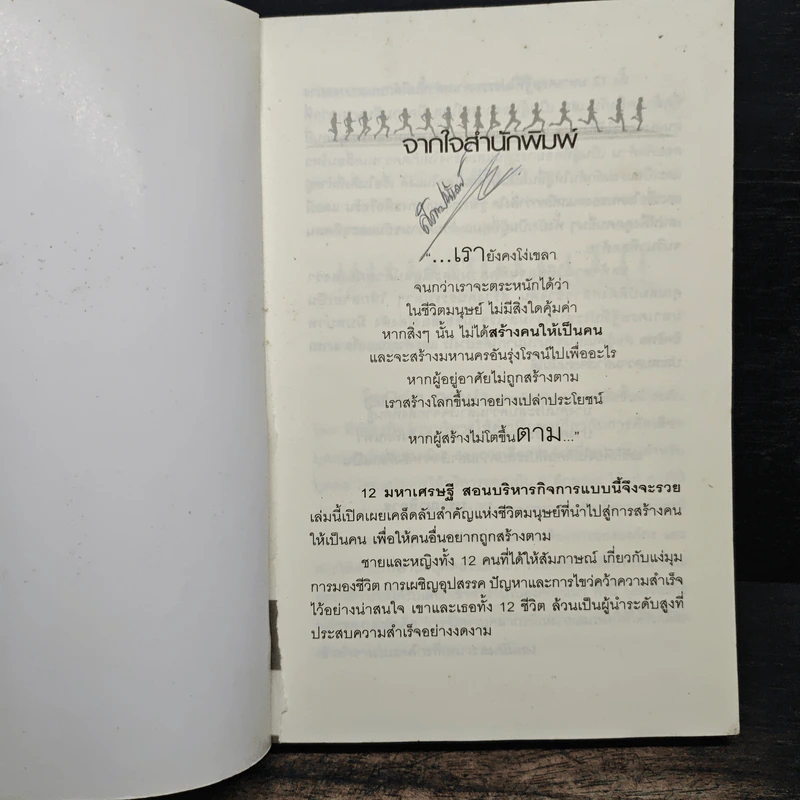 จากใจสำนักพิมพ์
“...เรายังคงโง่เขลา
จนกว่าเราจะตระหนักได้ว่า
ในชีวิตมนุษย์ ไม่มีสิ่งใดคุ้มค่า
หากสิ่งๆ นั้น ไม่ได้สร้างคนให้เป็นคน
และจะสร้างมหานครอันรุ่งโรจน์ไปเพื่ออะไร
หากผู้อยู่อาศัยไม่ถูกสร้างตาม
เราสร้างโลกขึ้นมาอย่างเปล่าประโยชน์
หากผู้สร้างไม่โตขึ้นตาม...”
12 มหาเศรษฐี สอนบริหารกิจการแบบนี้จึงจะรวย
เล่มนี้เปิดเผยเคล็ดลับสำคัญแห่งชีวิตมนุษย์ที่นำไปสู่การสร้างคน
ให้เป็นคน เพื่อให้คนอื่นอยากถูกสร้างตาม
ชายและหญิงทั้ง 12 คนที่ได้ให้สัมภาษณ์ เกี่ยวกับแง่มุม
การมองชีวิต การเผชิญอุปสรรค ปัญหาและการไขว่คว้าความสำเร็จ
ไว้อย่างน่าสนใจ เขาและเธอทั้ง 12 ชีวิต ล้วนเป็นผู้นำระดับสูงที่
ประสบความสำเร็จอย่างงดงาม